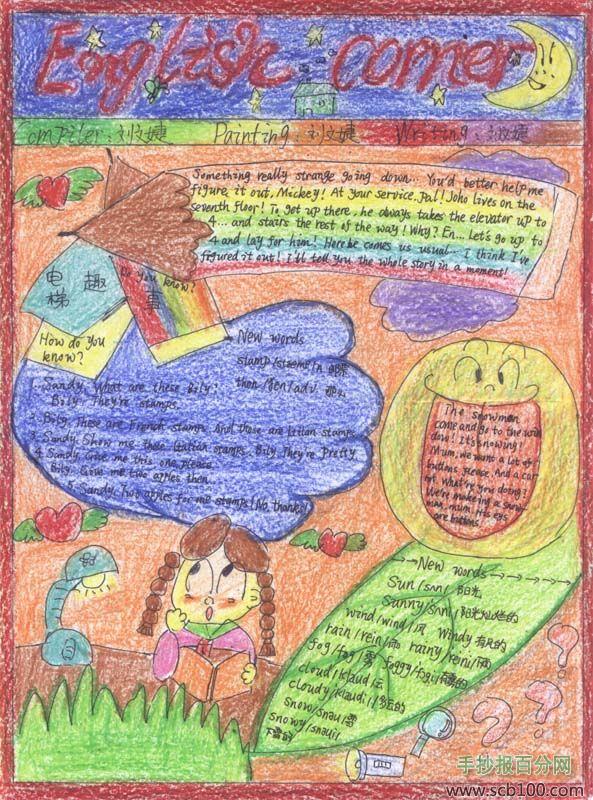 English corner
Compiler: 刘文婕 Painting: 刘文婕 Writing: 刘文婕
Something really strange going down... You'd better help me
figure it out, Mickey! At your service, pal! Joho lives on the
seventh floor! To get up there, he always takes the elevator up to
4... and stairs the rest of the way! Why? En... Let's go up to
4 and lay for him! Here be comes us usual... I think I've
figured it out! I'll tell you the whole story in a moment!
电梯趣事
Do you know?
How do you
know?
New words
stamp
then /ðen/ adv. 那么
1. Sandy. What are these Bily?
Bily. They're stamps.
2. Bily. These are French stamps. And those are Itlian stamps.
3. Sandy. Show me those Italian stamps. Bily. They're Pretty
4. Sandy. Give me this one, Please.
Bily. Give me two apples then...
5. Sandy. Two apples for one stamps! No, thanks!
The snowman
come and go to the win
dow! It's snowing!
Mum, we want a lot of
buttons, please. And a car
rot. What're you doing?
We're making a snow-
man, mum. His eyes
are buttons.
New words
Sun /sʌn/ 阳光
Sunny /sʌni/ 阳光灿烂的
wind /wind/ 风 Windy 有风的
rain /rein/ 雨 rainy /reini/ 雨
fog /fog/ 雾 foggy /fogi/ 有雾的
cloud /klaud/ 云
cloudy /klaudi/ 多云的
snow /snəu/ 雪
snowy /snəui/
下雪的
手抄报百分网
www.scb100.com